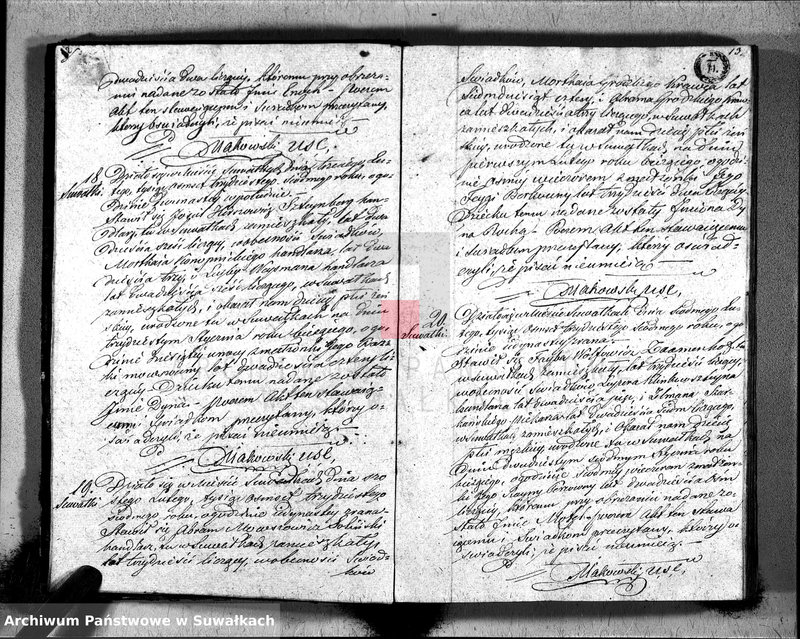 dwadzieścia dwa liczący, któremu przy obrzeza-
niu nadane zostało Imie Enoch - Poczem
Akt ten stawaiącemu i świadkom przeczytany,
który oswiadczyli, że pisać nieumieią
Makowski USC,
18.
Suwałki
Działo się w mieście Suwałkach dnia trzeciego Lu-
tego, tysiąc osmset trzydziestego siódmego roku, ogo-
dzinie dwunastey w południe
Stawił się Josiel Herszowicz Szteynberg han-
dlarz, tu w Suwałkach zamieszkały, lat dwa
dzieścia sześć liczący, w obecności świadków,
Mortchaia Konopnickiego handlarza, lat dwa
dzieścia trzy, i Leyby Waysmana handlarza
lat dwadzieścia sześć liczącego, w Suwałkach
zamieszkałych, i okazał nam dziecię płci żeń
skiey, urodzone tu w Suwałkach na dniu
trzydziestym Stycznia roku bieżącego, ogo-
dzinie dziesiątey z rana z małżonki Jego
lat dwadzieścia cztery li
czący Dziecku temu nadane zostało
Imie Dyna - Poczem Akt ten stawaiące
mu i Świadkom przeczytany, który o-
świadczyli, że pisać nieumieią
Makowski USC,
19.
Suwałki
Działo się w Mieście Suwałkach dnia szó
stego Lutego, tysiąc osmset trzydziestego
siódmego roku, ogodzinie Jedynastey zrana
Stawił się Abram Moszkowicz
handlarz, tu w Suwałkach zamieszkały,
lat trzydzieści liczący, w obecności Swiad-
ków
13.
11.
Swiadków, Mortchaia Grodzkiego Krawca lat
siedmdziesiąt cztery, i Abrama Grodzkiego
ca lat dwadzieścia trzy liczącego, w Suwałkach
zamieszkałych, i okazał nam dziecię płci żeń
skiey, urodzone tu w Suwałkach, na dniu
pierwszym Lutego roku bieżącego, ogodzi
nie osmey wieczorem z małżonki Jego
lat trzydzieści dwa liczący
Dziecku temu nadane zostały Imiona Dy
na Rocha - Poczem Akt ten Stawaiącemu
i swiadkom przeczytany, który oswiad-
czyli, że pisać nieumieią
Makowski USC,
20.
Suwałki
Działo się w mieście Suwałkach dnia siódmego Lu
tego, tysiąc osmset trzydziestego siódmego roku, ogo
dzinie Jedynastey zrana
Stawił się Leyba Wolfowicz
w Suwałkach zamieszkały, lat trzydzieści liczący,
w obecności Swiadków,
handlarza lat dwadzieścia pięć, i
Piekarza lat dwadzieścia siedm liczącego,
w Suwałkach zamieszkałych, i okazał nam Dziecię
płci męzkiey, urodzone tu w Suwałkach na
Dniu dwudziestym siódmym Stycznia roku
bieżącego, ogodzinie siódmey wieczorem z małżon
ki Jego lat dwadzieścia ośm
liczący, któremu przy obrzezaniu nadane zo
stało Imie - Poczem Akt ten stawa
iącemu i Swiadkom przeczytany, który o
swiadczyli, że pisać nieumieią
Makowski USC,
Archiwum Państwowe w Suwałkach